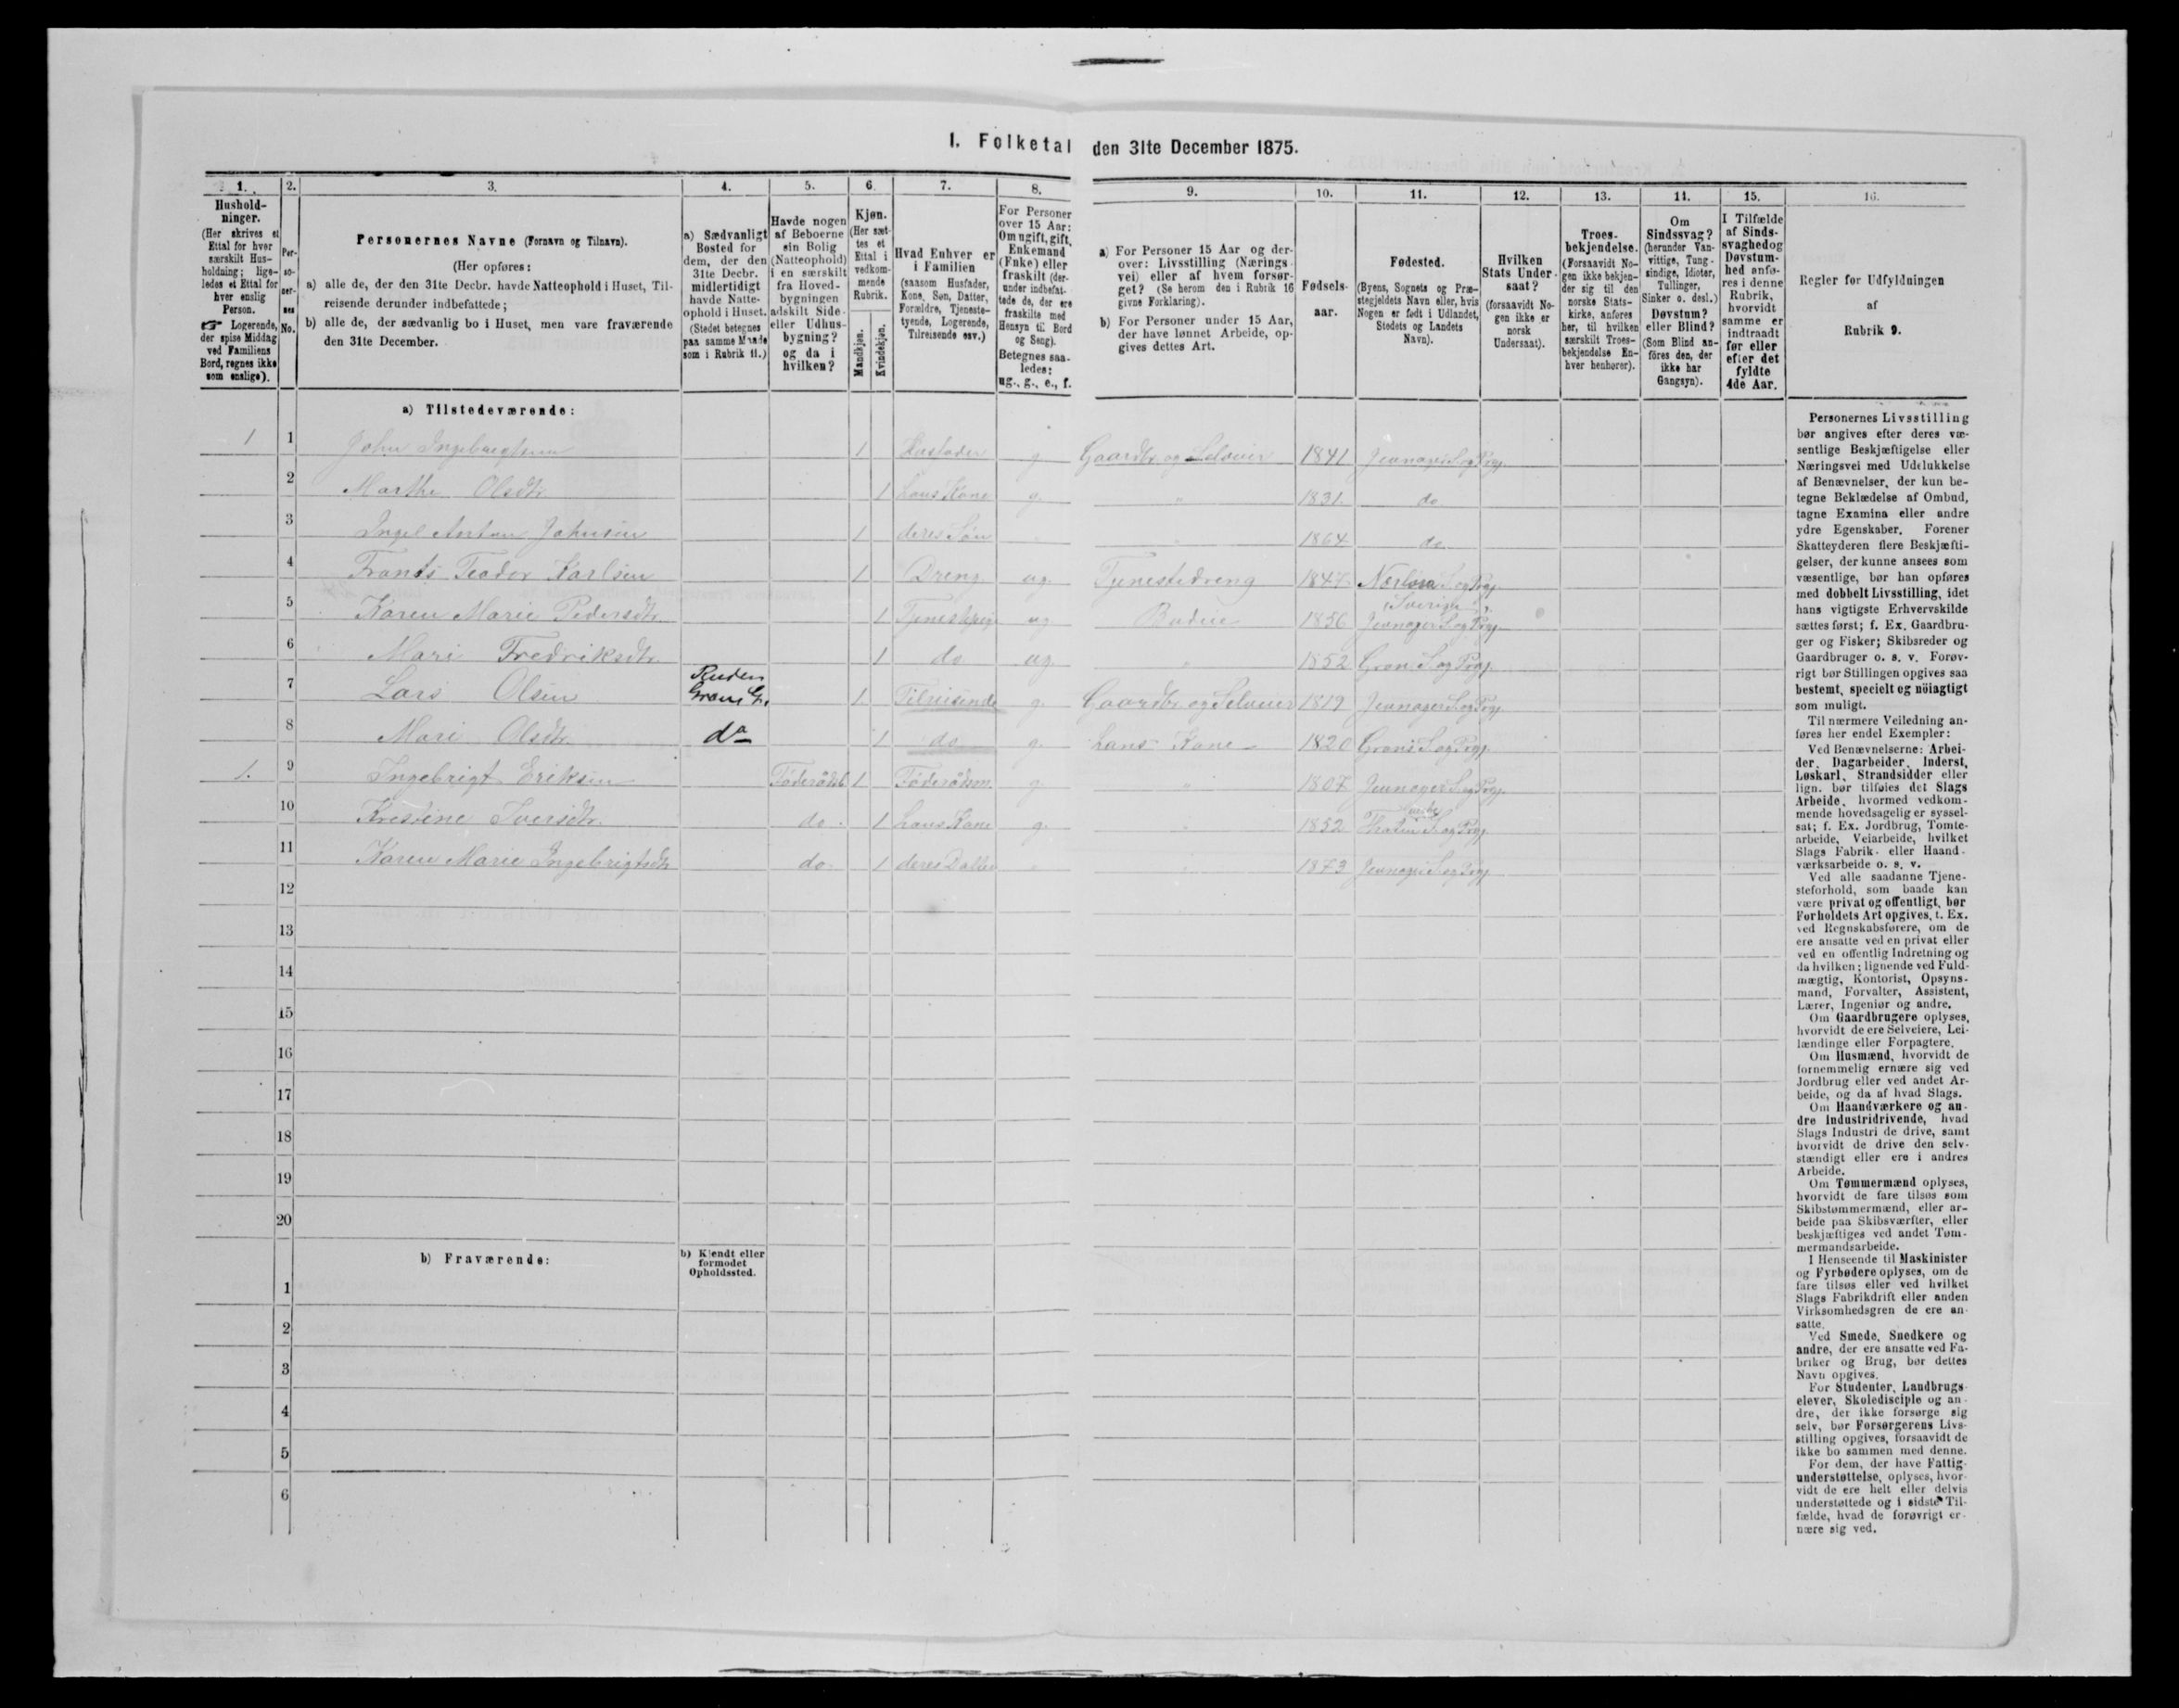 I. Folketal den 31te December 1875.
1.
Hushold-
ninger.
(Her skrives et
Ettal for hver
særskilt Hus-
holdning; lige-
ledes et Ettal for
hver enslig
Person.
☞ Logerende,
der spise Middag
ved Familiens
Bord, regnes ikke
som enslige).
2.
Per-
so-
ner-
nes
No.
3.
Personernes Navne (Fornavn og Tilnavn).
(Her opføres:
a) alle de, der den 31te Decbr. havde Natteophold i Huset, Til-
reisende derunder indbefattede;
b) alle de, der sædvanlig bo i Huset, men vare fraværende
den 31te December.
4.
a) Sædvanligt
Bosted for
dem, der den
31te Decbr.
midlertidigt
havde Natte-
ophold i Huset.
(Stedet betegnes
paa samme Maade
som i Rubrik 11.)
5.
Havde nogen
af Beboerne
sin Bolig
(Natteophold)
i en særskilt
fra Hoved-
bygningen
adskilt Side-
eller Udhus-
bygning?
og da i
hvilken?
6.
Kjøn.
(Her sæt-
tes et
Ettal i
vedkom-
mende
Rubrik.
Mandkjøn.
Kvindekjøn.
7.
Hvad Enhver er
i Familien
(saasom Husfader,
Kone, Søn, Datter,
Forældre, Tjeneste-
tyende, Logerende,
Tilreisende osv.)
8.
For Personer
over 15 Aar:
Om ugift, gift,
Enkemand
(Enke) eller
fraskilt (der-
under indbefat-
tede de, der ere
fraskilte med
Hensyn til Bord
og Seng).
Betegnes saa-
ledes:
ug., g., e., f.
9.
a) For Personer 15 Aar og der-
over: Livsstilling (Nærings-
vei) eller af hvem forsør-
get? (Se herom den i Rubrik 16
givne Forklaring).
b) For Personer under 15 Aar,
der have lønnet Arbeide, op-
gives dettes Art.
10.
Fødsels-
aar.
11.
Fødested.
(Byens, Sognets og Præ-
stegjeldets Navn eller, hvis
Nogen er født i Udlandet,
Stedets og Landets
Navn).
12.
Hvilken
Stats Under-
saat?
(forsaavidt No-
gen ikke er
norsk
Undersaat).
13.
Troes-
bekjendelse.
(Forsaavidt No-
gen ikke bekjen-
der sig til den
norske Stats-
kirke, anføres
her, til hvilken
særskilt Troes-
bekjendelse En-
hver henhører).
14.
Om
Sindssvag?
(herunder Van-
vittige, Tung-
sindige, Idioter,
Tullinger,
Sinker o. desl.)
Døvstum?
eller Blind?
(Som Blind an-
föres den, der
ikke har
Gangsyn).
15.
I Tilfælde
af Sinds-
svaghed og
Døvstum-
hed anfø-
res i denne
Rubrik,
hvorvidt
samme er
indtraadt
før eller
efter det
fyldte
4de Aar.
16.
Regler for Udfyldningen
af
Rubrik 9.
a) Tilstedeværende:
1 1 John Ingebregtsen 1 Husfader g Gaardbr. og Selveier 1841 Jevnager S. og Prgj.
2 Marthe Olsdtr. 1 hans Kone g. " 1831. do
3 Ingel Anton Johnsen 1 deres Søn " 1864 do
4 Frants Teodor Karlsen 1 Dreng ug. Tjenestedreng 1847. S. og Prgj.
Sverige
5 Karen Marie Pedersdtr. 1 Tjenestepige ug. Budeie 1856 Jevnager S. og Prgj.
6 Mari Fredriksdtr. 1 do ug. " 1852 Gran S. og Prgj.
7 Lars Olsen Ruden Grans G. 1. Tilreisende g. Gaardbr. og Selveier 1819 Jevnager S. og Prgj.
8 Mari Olsdtr. do 1 do g. hans Kone 1820 Grans S. og Prgj.
1. 9 Ingebrigt Eriksen Föderådsb. 1 Föderådsm. g. " 1807 Jevnager S. og Prgj.
10 Kristine Iversdtr. do. 1 hans Kone g. " 1852 S. og Prgj.
11 Karen Marie Ingebrigtsdtr do. 1 deres Datter " 1873 Jevnager S. og Prgj.
12
13
14
15
16
17
18
19
20
b) Fraværende:
b) Kjendt eller
formodet
Opholdssted.
1
2
3
4
5
6
Personernes Livsstilling
bør angives efter deres væ-
sentlige Beskjæftigelse eller
Næringsvei med Udelukkelse
af Benævnelser, der kun be-
tegne Beklædelse af Ombud,
tagne Examina eller andre
ydre Egenskaber. Forener
Skatteyderen flere Beskjæfti-
gelser, der kunne ansees som
væsentlige, bør han opføres
med dobbelt Livsstilling, idet
hans vigtigste Erhvervskilde
sættes først; f. Ex. Gaardbru-
ger og Fisker; Skibsreder og
Gaardbruger o. s. v. Forøv-
rigt bør Stillingen opgives saa
bestemt, specielt og nöiagtigt
som muligt.
Til nærmere Veiledning an-
føres her endel Exempler:
Ved Benævnelserne: Arbei-
der, Dagarbeider, Inderst,
Løskarl, Strandsidder eller
lign. bør tilføies det Slags
Arbeide, hvormed vedkom-
mende hovedsagelig er syssel-
sat; f. Ex. Jordbrug, Tomte-
arbeide, Veiarbeide, hvilket
Slags Fabrik- eller Haand-
værksarbeide o. s. v.
Ved alle saadanne Tjene-
steforhold, som baade kan
være privat og offentligt, bør
Forholdets Art opgives, t. Ex.
ved Regnskabsførere, om de
ere ansatte ved en privat eller
ved en offentlig Indretning og
da hvilken; lignende ved Fuld-
mægtig, Kontorist, Opsyns-
mand, Forvalter, Assistent,
Lærer, Ingeniør og andre.
Om Gaardbrugere oplyses,
hvorvidt de ere Selveiere, Lei-
lændinge eller Forpagtere.
Om Husmænd, hvorvidt de
fornemmelig ernære sig ved
Jordbrug eller ved andet Ar-
beide, og da af hvad Slags.
Om Haandværkere og an-
dre Industridrivende, hvad
Slags Industri de drive, samt
hvorvidt de drive den selv-
stændigt eller ere i andres
Arbeide.
Om Tømmermænd oplyses,
hvorvidt de fare tilsøs som
Skibstømmermænd, eller ar-
beide paa Skibsværfter, eller
beskjæftiges ved andet Tøm-
mermandsarbeide.
I Henseende til Maskinister
og Fyrbødere oplyses, om de
fare tilsøs eller ved hvilket
Slags Fabrikdrift eller anden
Virksomhedsgren de ere an-
satte.
Ved Smede, Snedkere og
andre, der ere ansatte ved Fa-
briker og Brug, bør dettes
Navn opgives.
For Studenter, Landbrugs-
elever, Skoledisciple og an-
dre, der ikke forsørge sig
selv, bør Forsørgerens Livs-
stilling opgives, forsaavidt de
ikke bo sammen med denne.
For dem, der have Fattig-
understøttelse, oplyses, hvor-
vidt de ere helt eller delvis
understøttede og i sidste Til-
fælde, hvad de forøvrigt er-
nære sig ved.